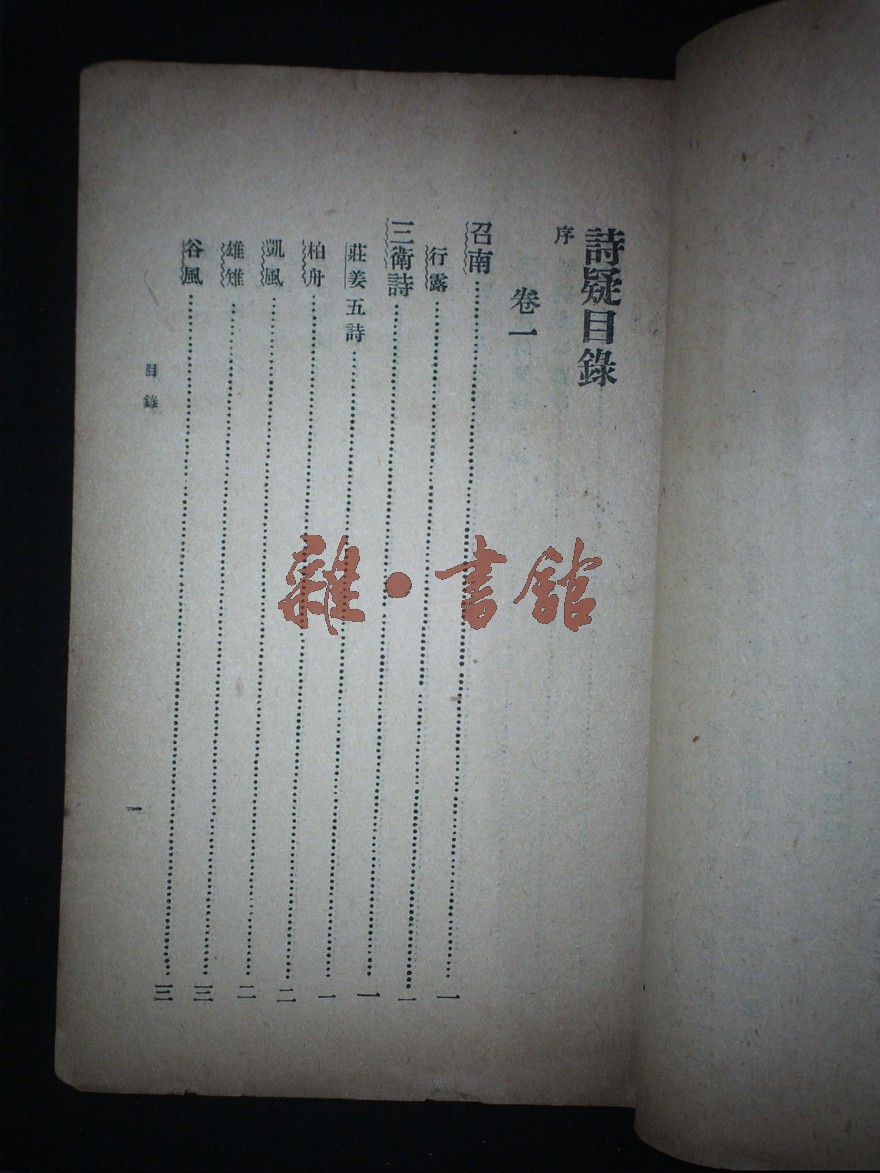 詩疑目錄
序
卷一
召南……一
行露……一
三衛詩……一
莊姜五詩……一
柏舟……二
凱風……二
雄雉……三
谷風……三
目錄
一
雜·書館